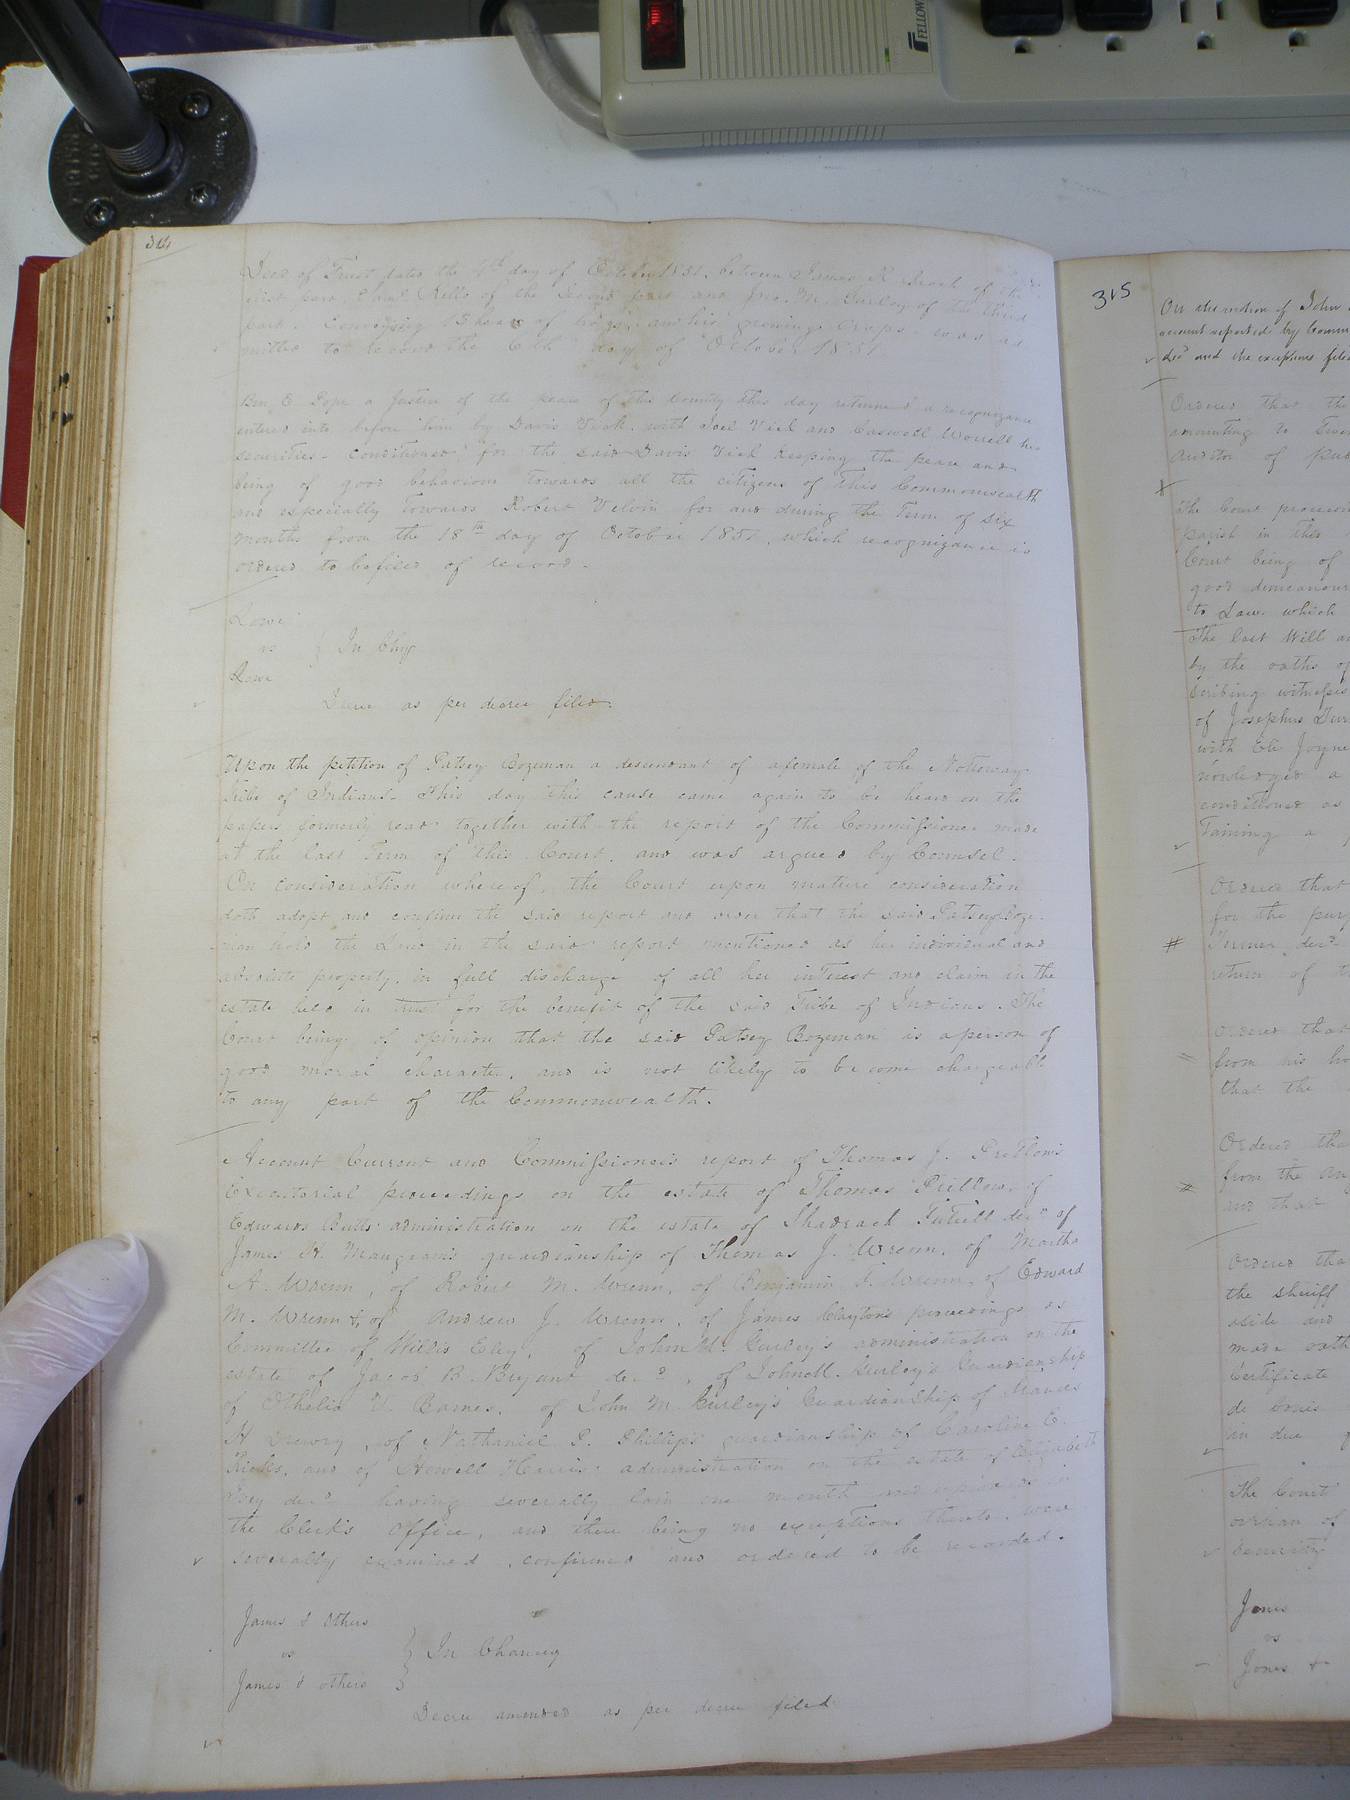 FELLOW
314
Deed of Trust dated the 4th day of October 1851, between James R of the
first part, Rells of the Second part and Jno. M. Gurley of the third
part. Conveying 13 head of hogs, and his growing Crops was ad
mitted to record the 6th day of October 1851
Ben. E Pope a Justice of the peace of this County this day returned a recognizance
entered into before him by Davis Vick, with Joel Vick and Caswell Worrell his
securities - conditioned for the said Davis Vick keeping the peace and
being of good behaviour towards all the citizens of this Commonwealth
and especially towards Robert Velvin for and during the Term of six
months from the 18th day of October 1851, which recognizance is
ordered to be filed of record.
Lowe
vs } In Chy
Lowe
Decree as per decree filed.
Upon the petition of Patsey Bozeman a descendant of a female of the Nottoway
Tribe of Indians - This day this cause came again to be heard on the
papers formerly read together with the report of the Commissioner made
at the last Term of this Court, and was argued by Counsel.
On consideration whereof, the Court upon mature consideration
doth adopt and confirm the said report and order that the said Patsey Boze-
man hold the Land in the said report mentioned as her individual and
absolute property, in full discharge of all her interest and claim in the
estate held in trust for the benefit of the said Tribe of Indians. The
Court being of opinion that the said Patsey Bozeman is a person of
good moral character, and is not likely to become chargeable
to any part of the Commonwealth.
Account Current and Commissioner's report of Thomas J. Pretlow's
Executorial proceedings on the estate of Thomas Pretlow, of
Edwards Butts administration on the estate of Shadrack Futrell decd of
James H. Mangeam's guardianship of Thomas J. Wrenn, of Martha
A. Wrenn, of Robert M. Wrenn, of Benjamin F. Wrenn, of Edward
M. Wrenn &, of Andrew J. Wrenn, of James Clayton's proceedings as
Committee of Willis Eley, of John M. Gurley's administration on the
estate of Jacob B. Bryant decd, of John M. Gurley's Guardianship
of Othelia V. Barnes, of John M. Gurley's Guardianship of Frances
H Drewry, of Nathaniel P. Phillips guardianship of Caroline E.
Ricks, and of Howell Harris' administration on the estate of Elizabeth
Ivey decd having severally lain one month and upwards in
the Clerk's Office, and there being no exceptions thereto, were
severally examined, confirmed and ordered to be recorded.
James & Others
vs } In Chancery
James & others
Decree amended as per decree filed
315
On the motion of John
account reported by Comm
decd and the exceptions filed
Ordered that the
amounting to
Auditor of pub
The Court
parish in this
Court being of
good demeanour
to Law. which
The last Will a
by the oaths of
scribing witnesses
of Josephus
with Eli Joyne
nowledged a
conditioned as
taining a
Ordered that
for the purp
# decd
return of t
Ordered that
from his ho
that the
Ordered tha
from the an
and that
Ordered tha
the sheriff
aside and
made oath
Certificate
de bonis
in due
The Court
orphan of
Security
Jones
vs
Jones &